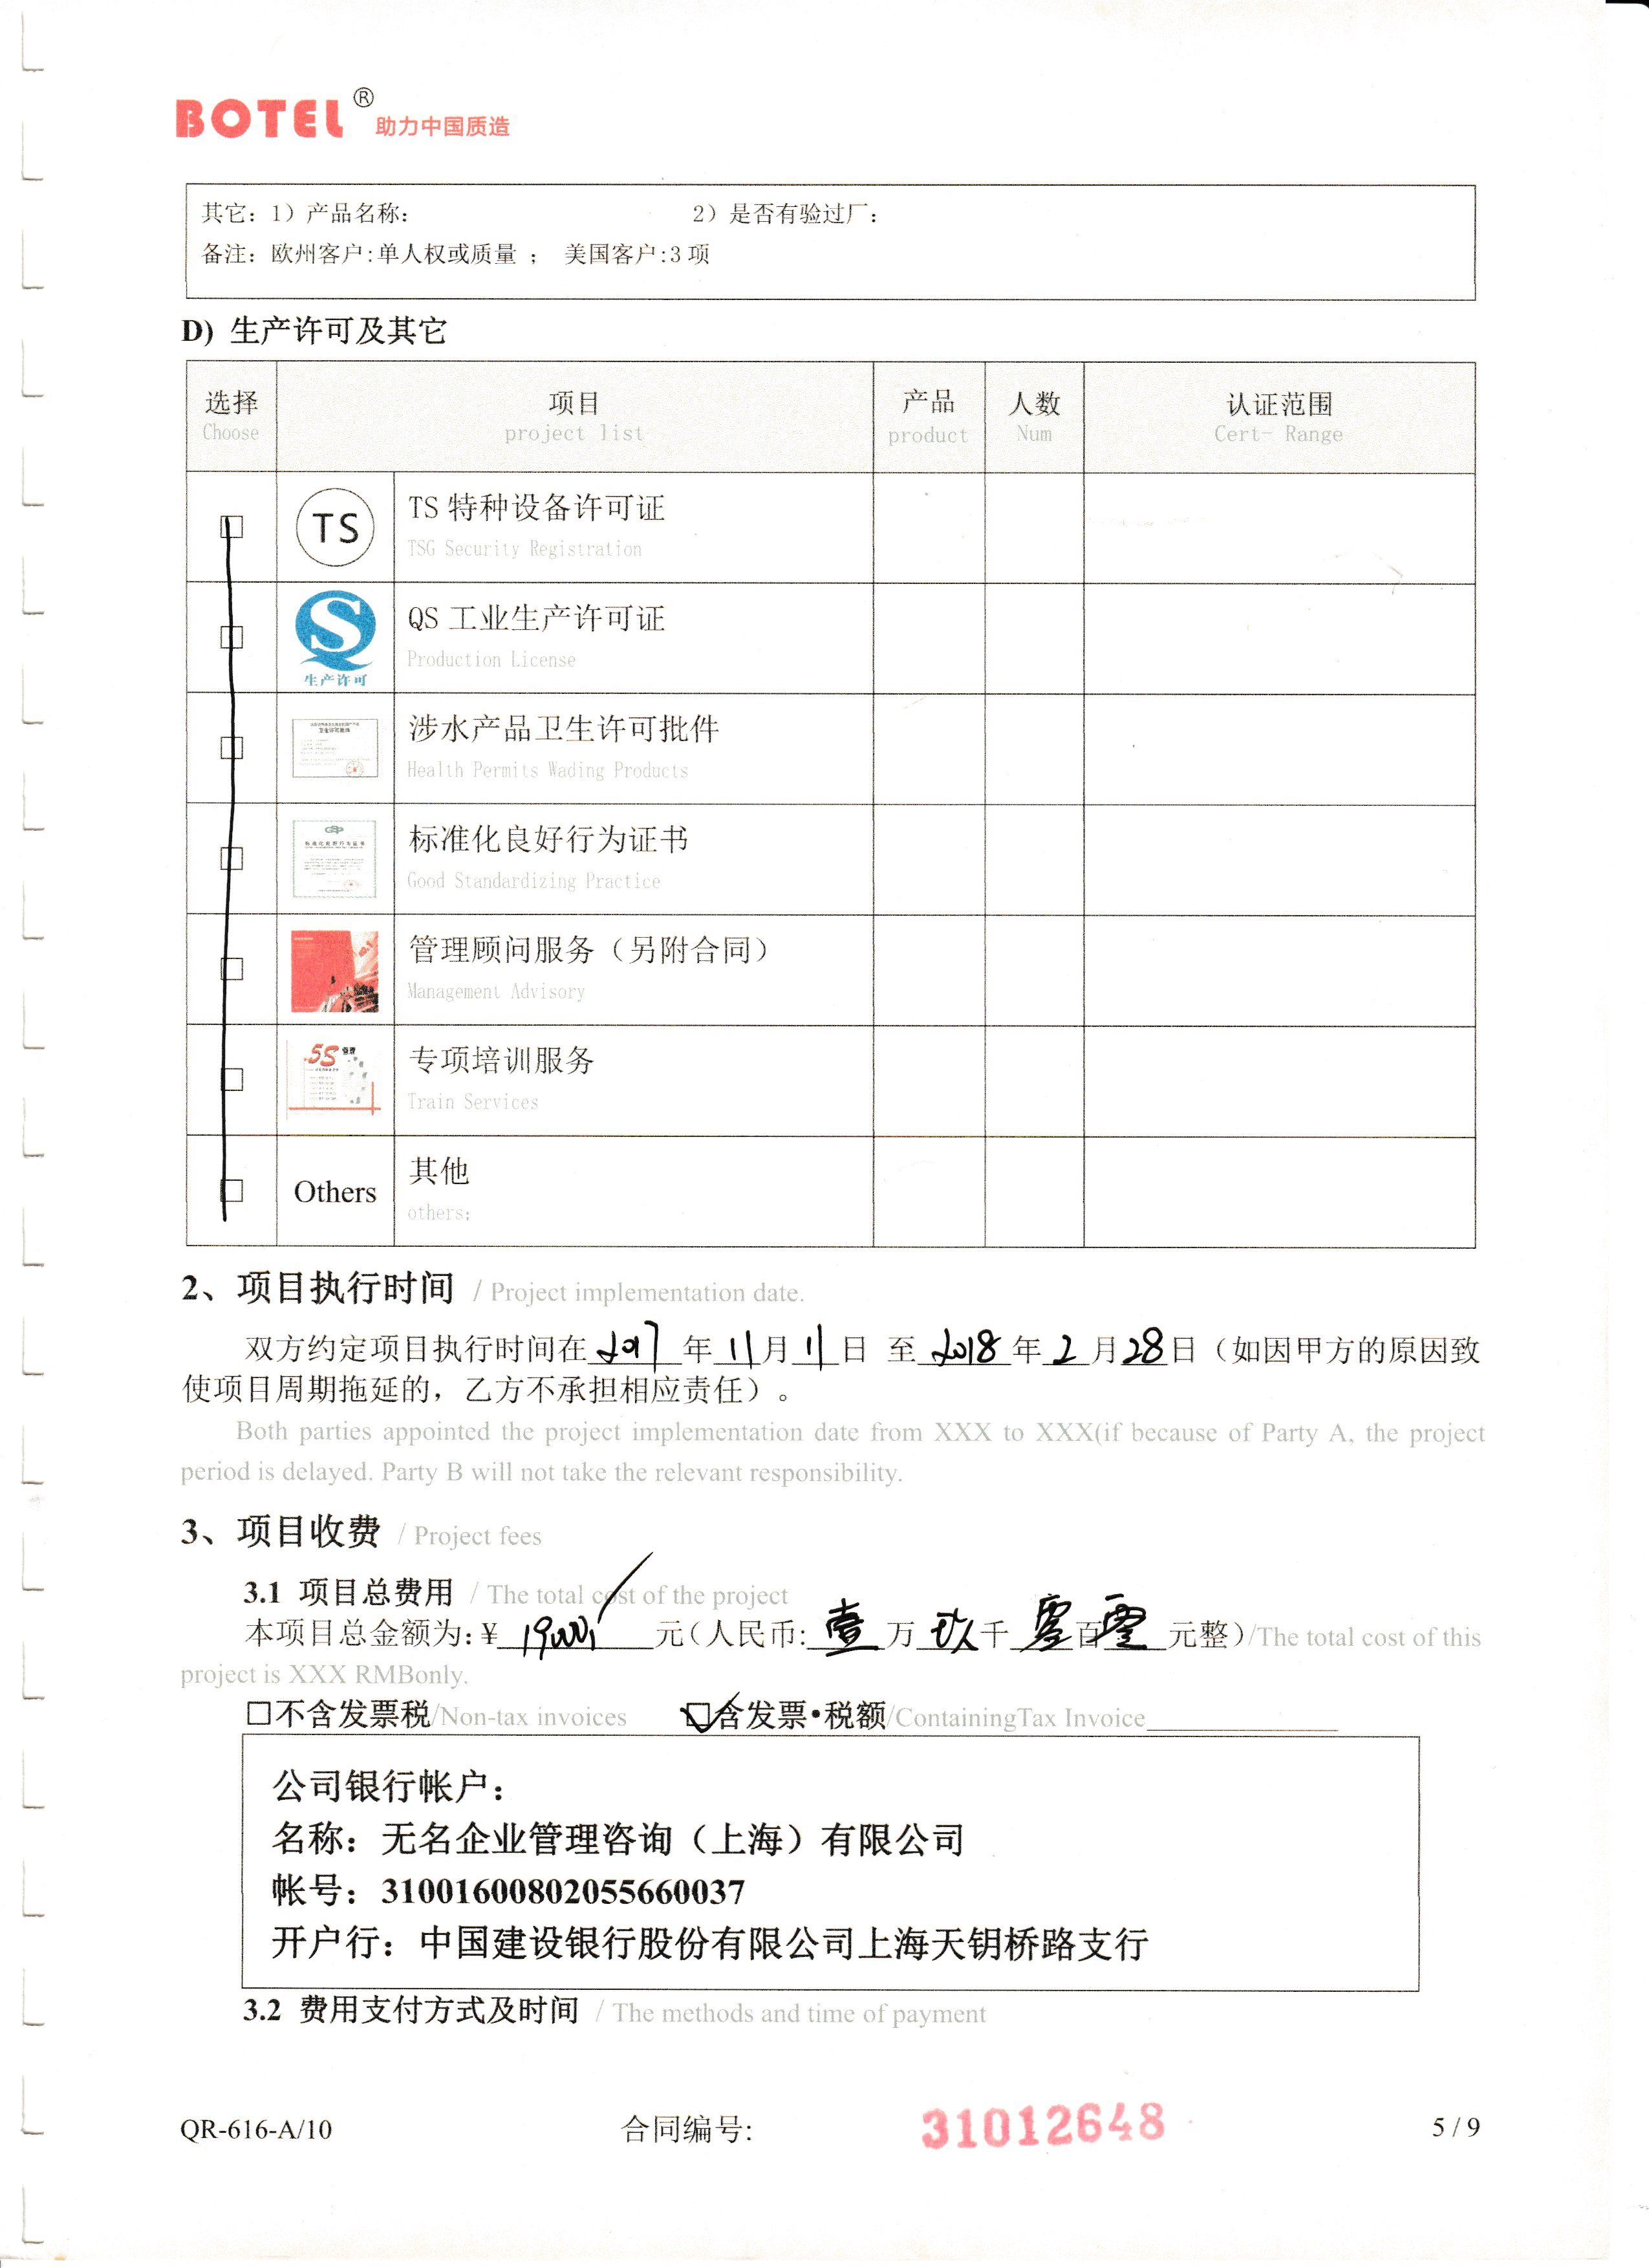 BOTEL® 助力中国质造
其它：1）产品名称： 2）是否有验过厂：
备注：欧州客户:单人权或质量 ； 美国客户:3 项
D) 生产许可及其它
选择 项目 产品 人数 认证范围
Choose project list product Num Cert- Range
TS TS 特种设备许可证
TSG Security Registration
QS 工业生产许可证
Production License
生产许可
涉水产品卫生许可批件
卫生许可批件
Health Permits Wading Products
标准化良好行为证书
Good Standardizing Practice
管理顾问服务（另附合同）
Management Advisory
5S 管理 专项培训服务
Train Services
Others 其他
others:
2、项目执行时间 / Project implementation date.
双方约定项目执行时间在 2017 年 11 月 11 日 至 2018 年 2 月 28 日（如因甲方的原因致
使项目周期拖延的，乙方不承担相应责任）。
Both parties appointed the project implementation date from XXX to XXX(if because of Party A, the project
period is delayed. Party B will not take the relevant responsibility.
3、项目收费 / Project fees
3.1 项目总费用 / The total cost of the project
本项目总金额为:¥ 19000 元(人民币: 壹 万 玖 千 零 百 零 元整)/The total cost of this
project is XXX RMBonly.
□不含发票税/Non-tax invoices ☑含发票•税额/ContainingTax Invoice
公司银行帐户：
名称：无名企业管理咨询（上海）有限公司
帐号：31001600802055660037
开户行：中国建设银行股份有限公司上海天钥桥路支行
3.2 费用支付方式及时间 / The methods and time of payment
QR-616-A/10 合同编号: 31012648 5 / 9